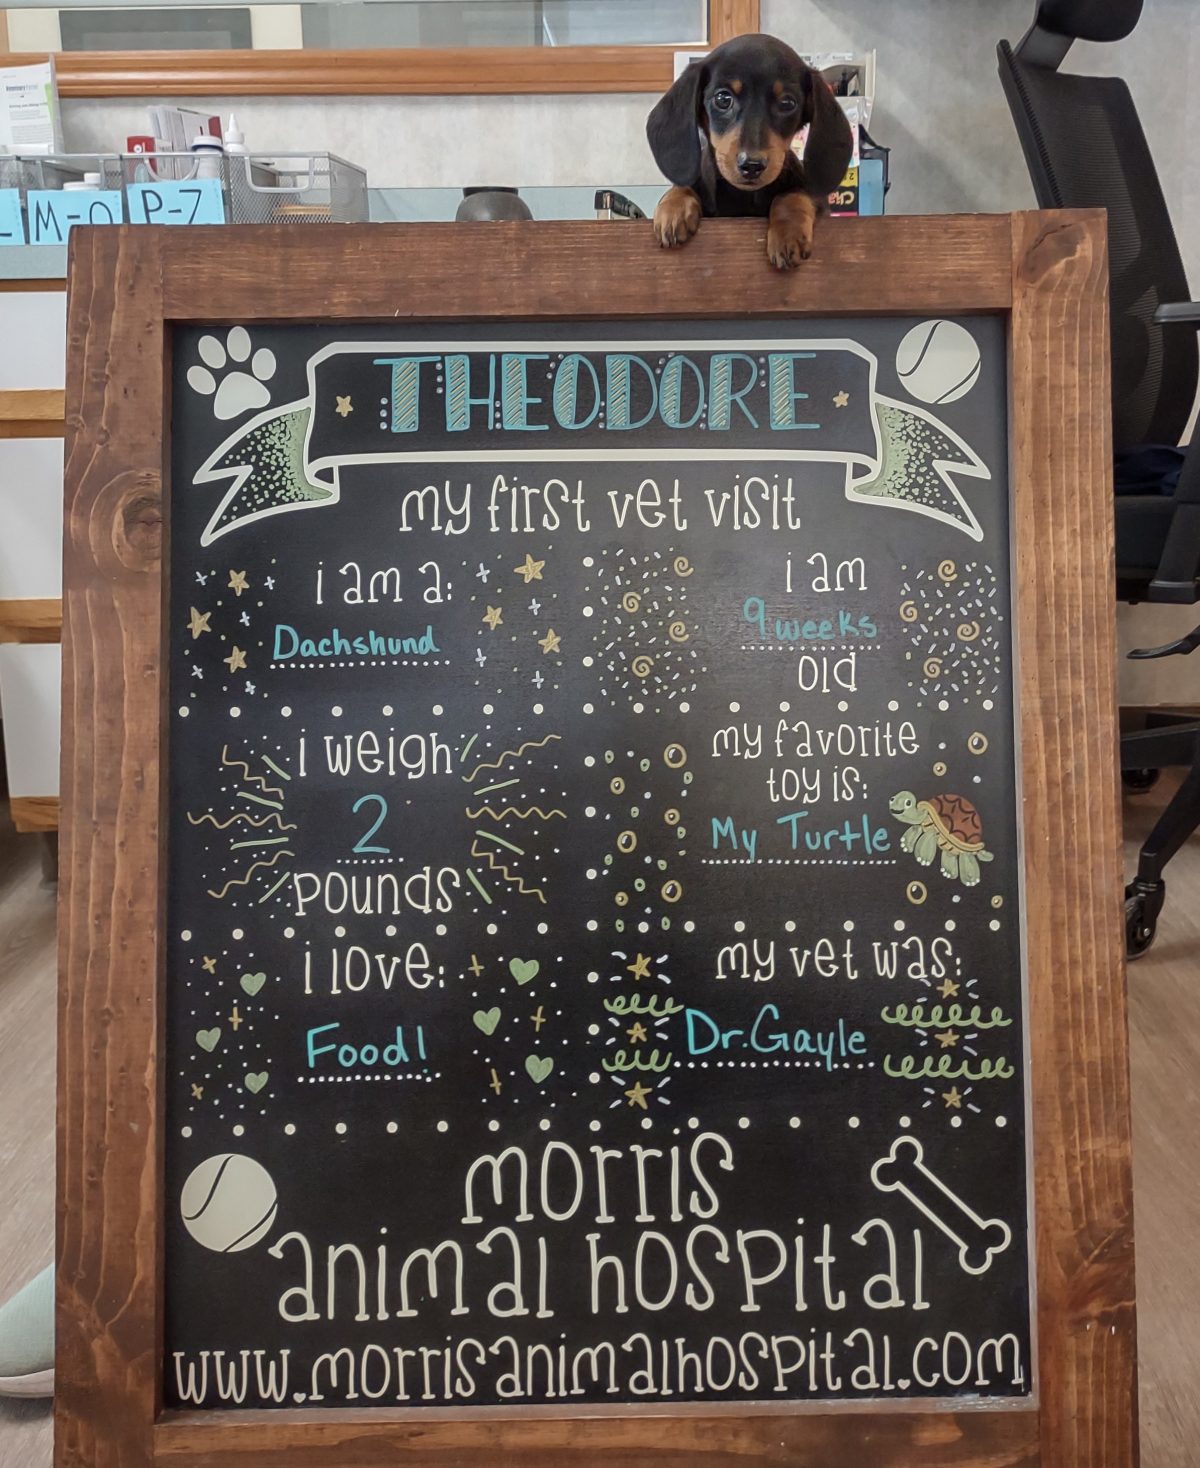 M-O
P-Z
THEODORE
my first vet visit
i am a:
Dachshund
i am
9 weeks
old
i weigh
2
pounds
my favorite
toy is:
My Turtle
i love:
Food!
my vet was:
Dr. Gayle
morris
animal hospital
www.morrisanimalhospital.com